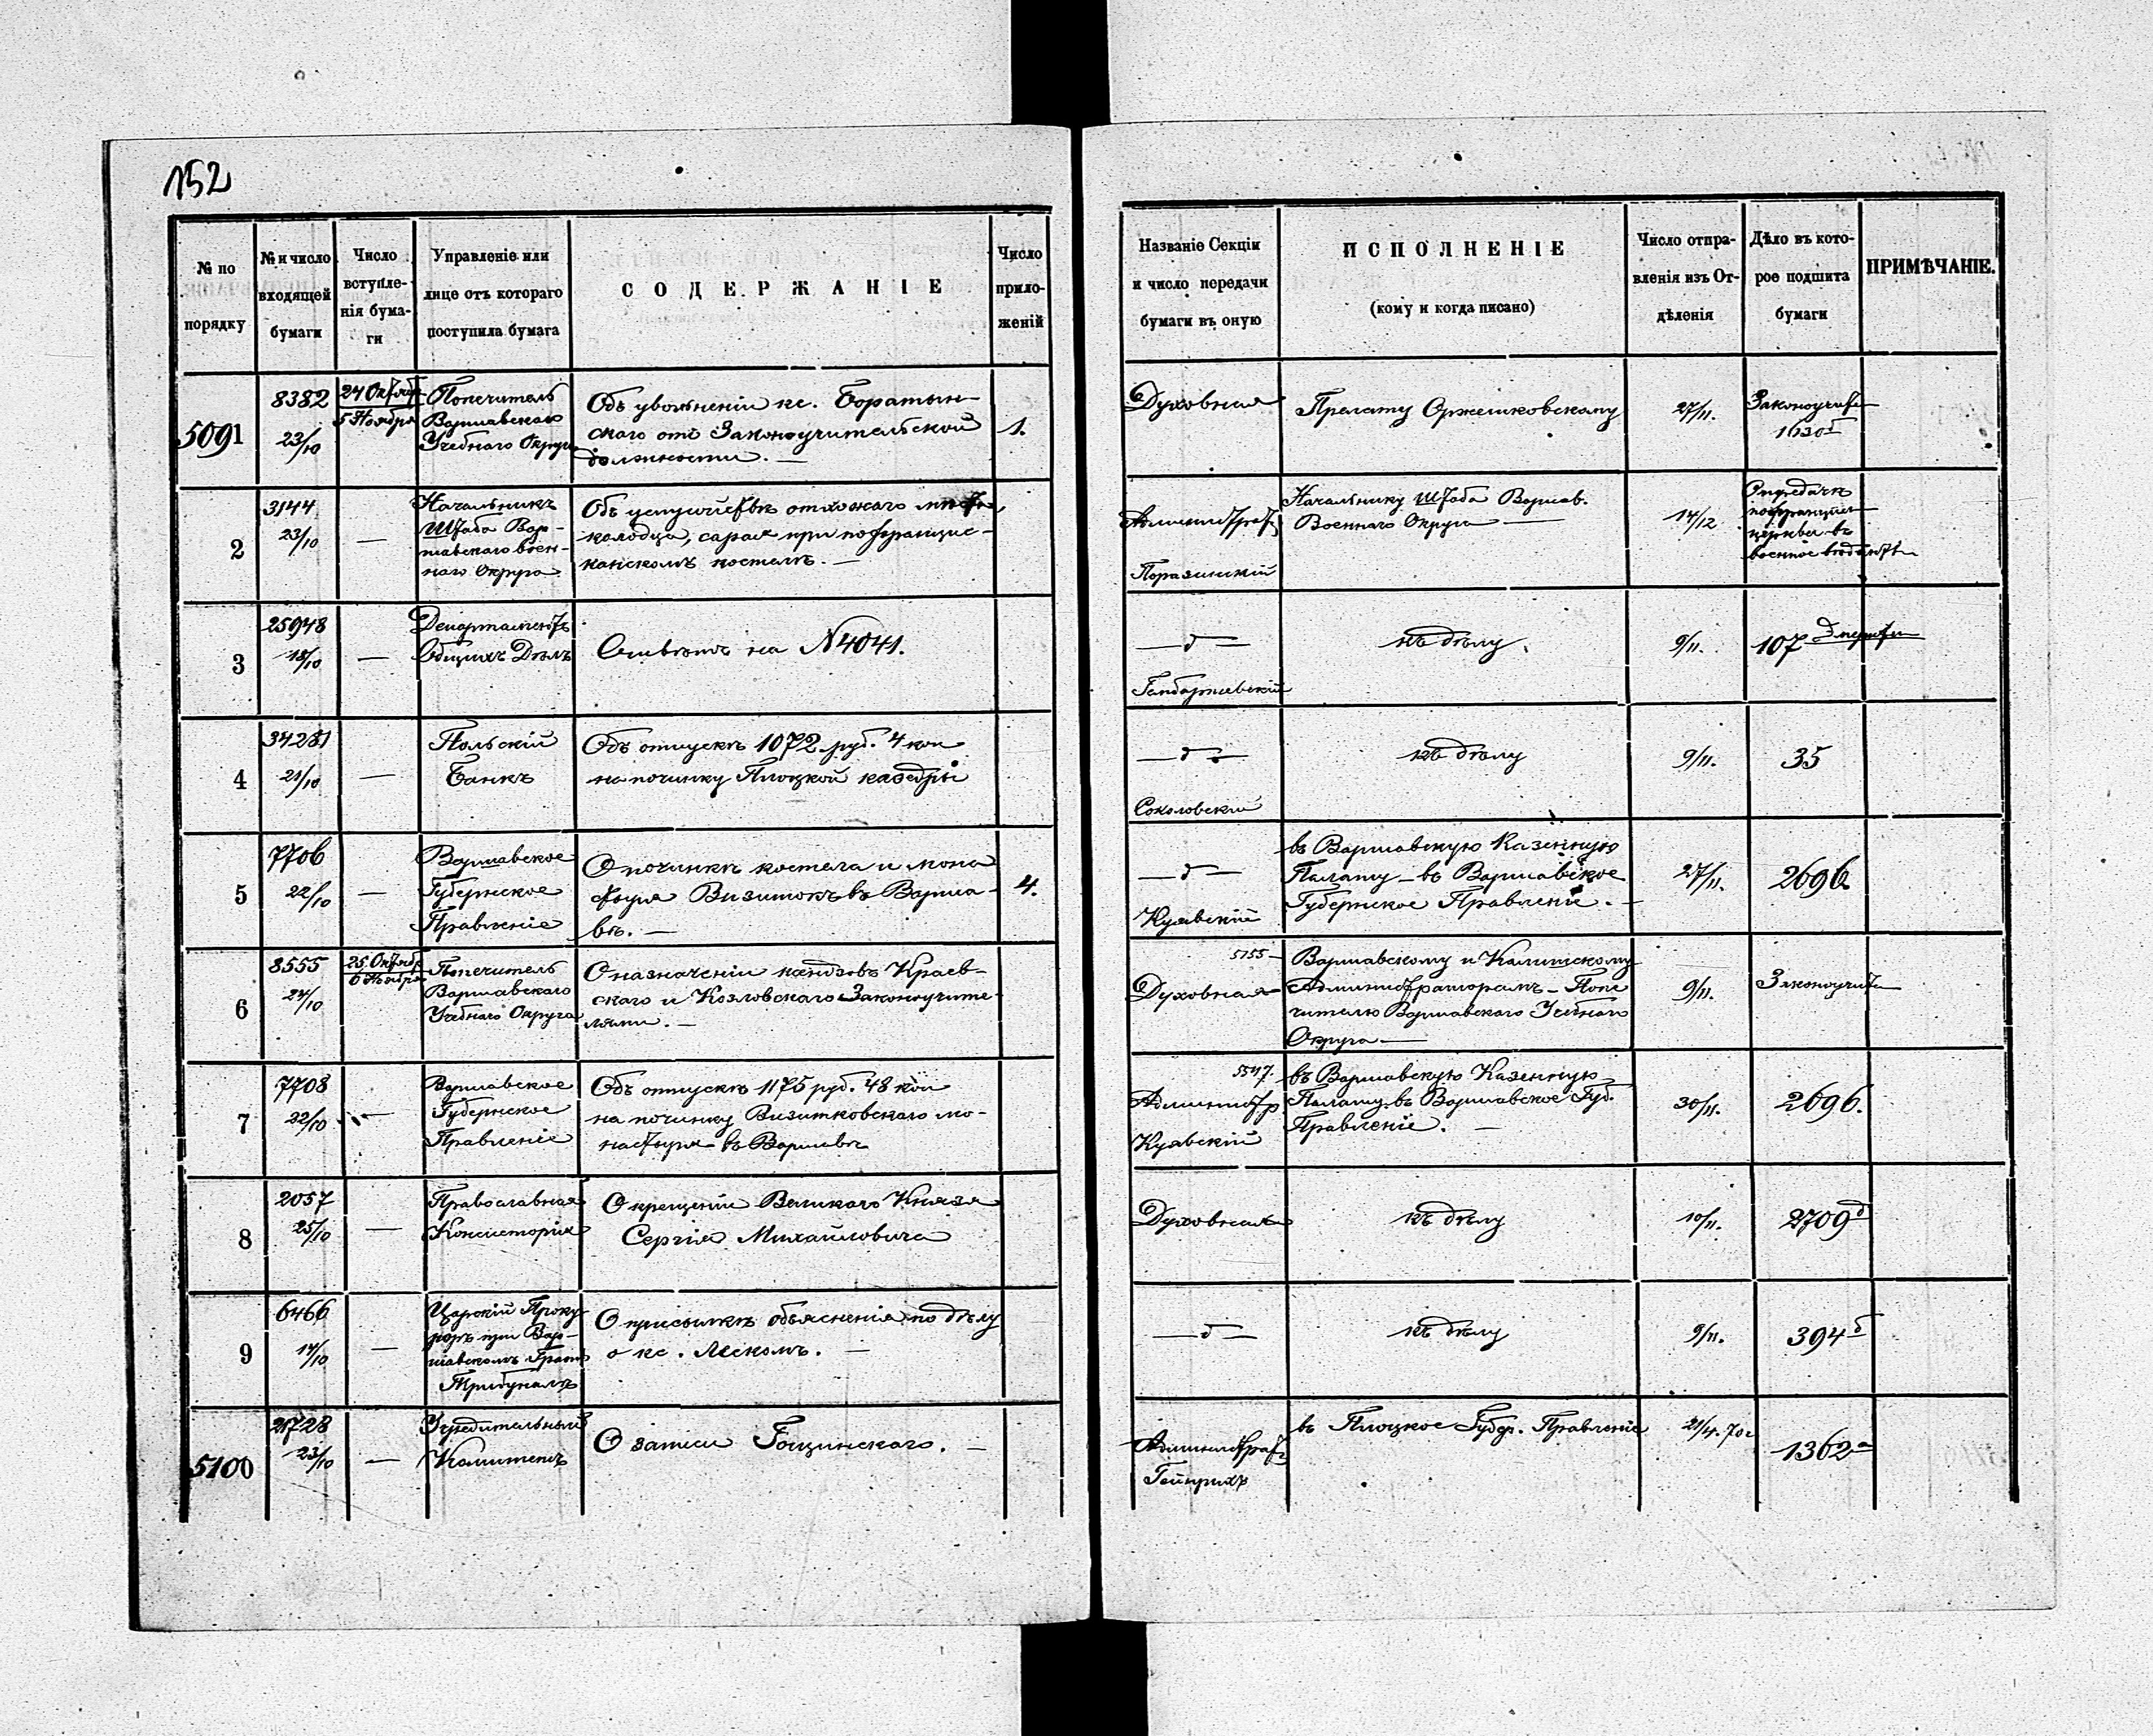 152
№ по порядку
№ и число входящей бумаги
Число вступле-
нія бума-
ги
Управленіе или
лице отъ котораго
поступила бумага
СОДЕРЖАНІЕ
Число
прило-
женій
Названіе Секціи
и число передачи
бумаги въ оную
ИСПОЛНЕНІЕ
(кому и когда писано)
Число отпра-
вленія изъ От-
дѣленія
Дѣло въ кото-
рое подшита
бумаги
ПРИМѢЧАНІЕ.
5091
8382
23/10
24 Октяб
5 Ноября
Попечитель
Варшавскаго
Учебнаго Округа
Объ увольненіи кс. Боратын-
скаго отъ Законоучительской
должности. —
1.
Духовная
Прелату Оржешковскому
27/11.
Законоучит
1630 б
2
3144
23/10
—
Начальникъ
Штаба Вар-
шавскаго Воен-
наго Округа
Объ устройствѣ отхожаго мѣста,
колодца, сарая при пофранцис-
канскомъ костелѣ. —
Администрат
Начальнику Штаба Варшав.
Военнаго Округа —
14/12
О передачѣ
пофранцис
церкви въ
военное вѣдомст
3
25948
18/10
—
Департаментъ
Общихъ Дѣлъ
Отвѣтъ на N4041.
— д —
къ дѣлу.
9/11.
107
4
34281
21/10
—
Польскій
Банкъ
Объ отпускѣ 1072 руб. 4 коп
на починку Плоцкой каѳедры
— д —
Соколовскій
къ дѣлу
9/11.
35
5
7706
22/10
—
Варшавское
Губернское
Правленіе
О починкѣ костела и мона
стыря Визитокъ въ Варша-
вѣ. —
4.
— д —
Куявскій
въ Варшавскую Казенную
Палату – въ Варшавское
Губернское Правленіе. —
27/11.
2696
6
8555
24/10
25 Октяб
6 Ноября
Попечитель
Варшавскаго
Учебнаго Округа
О назначеніи ксендзовъ Краев-
скаго и Козловскаго Законоучите-
лями. —
5155 –
Духовная
Варшавскому и Калишскому
Администраторамъ – Попе
чителю Варшавскаго Учебнаго
Округа —
9/11.
Законоучит
7
7708
22/10
—
Варшавское
Губернское
Правленіе
Объ отпускѣ 1175 руб. 48 коп
на починку Визитковскаго мо-
настыря въ Варшавѣ
5547.
Администр
Куявскій
въ Варшавскую Казенную
Палату въ Варшавское Губ.
Правленіе. —
30/11.
2696.
8
2057
25/10
—
Православная
Консисторія
О крещеніи Великаго Князя
Сергія Михайловича
Духовная
къ дѣлу
10/11.
2709 д
9
6466
14/10
—
Царскій Проку
роръ при Вар-
шавскомъ Граж
Трибуналѣ
О присылкѣ объясненія по дѣлу
о кс. Лескомъ. —
— д —
къ дѣлу
9/11.
394 б
5100
21728
23/10
—
Учредительный
Комитетъ
О записи Гощинскаго. —
Администрат
Гейнрихъ
въ Плоцкое Губер. Правленіе
21/4. 70 г
1362 а